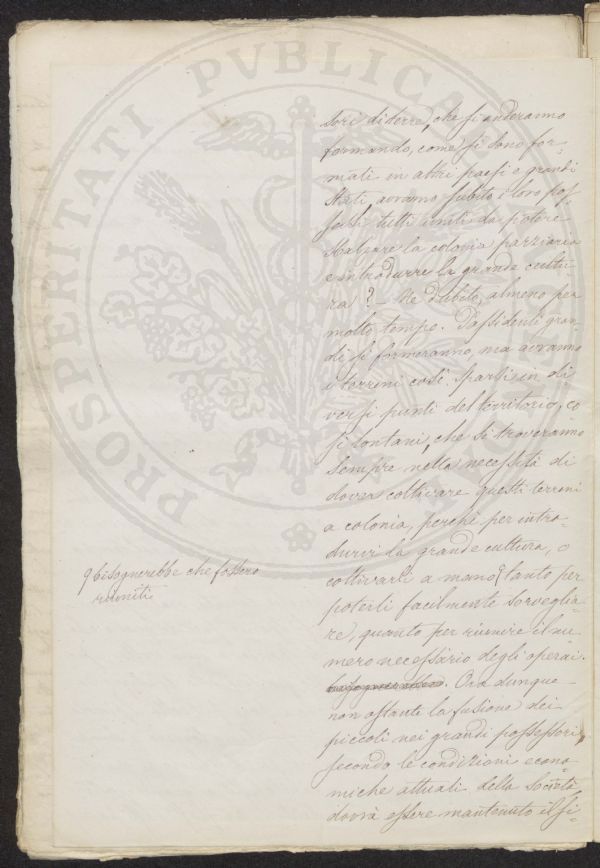 PROSPERITATI PUBLICAE
sori di terre, che si anderanno
formando, come si sono for-
mati in altri paesi e grandi
Stati, avranno subito i loro pos-
sessi tutti uniti da potere
sbalzare la colonia parziaria
e introdurre la grande cultu-
ra? – Ne dubito, almeno per
molto tempo. Possidenti gran-
di si formeranno, ma avranno
i terreni così sparsi in di
versi punti del territorio, co
si lontani, che si troveranno
sempre nella necessità di
dover coltivare questi terreni
a colonia, perchè per intro-
durvi la grande cultura, o
coltivarli a mano tanto per
poterli facilmente sorveglia-
re, quanto per riunire il nu-
mero necessario degli operai.
bisognerebbe. Ora dunque
non ostante la fusione dei
piccoli nei grandi possessori,
secondo le condizioni econo-
miche attuali della Società
dovrà essere mantenuto il si-
bisognerebbe che fossero
riuniti